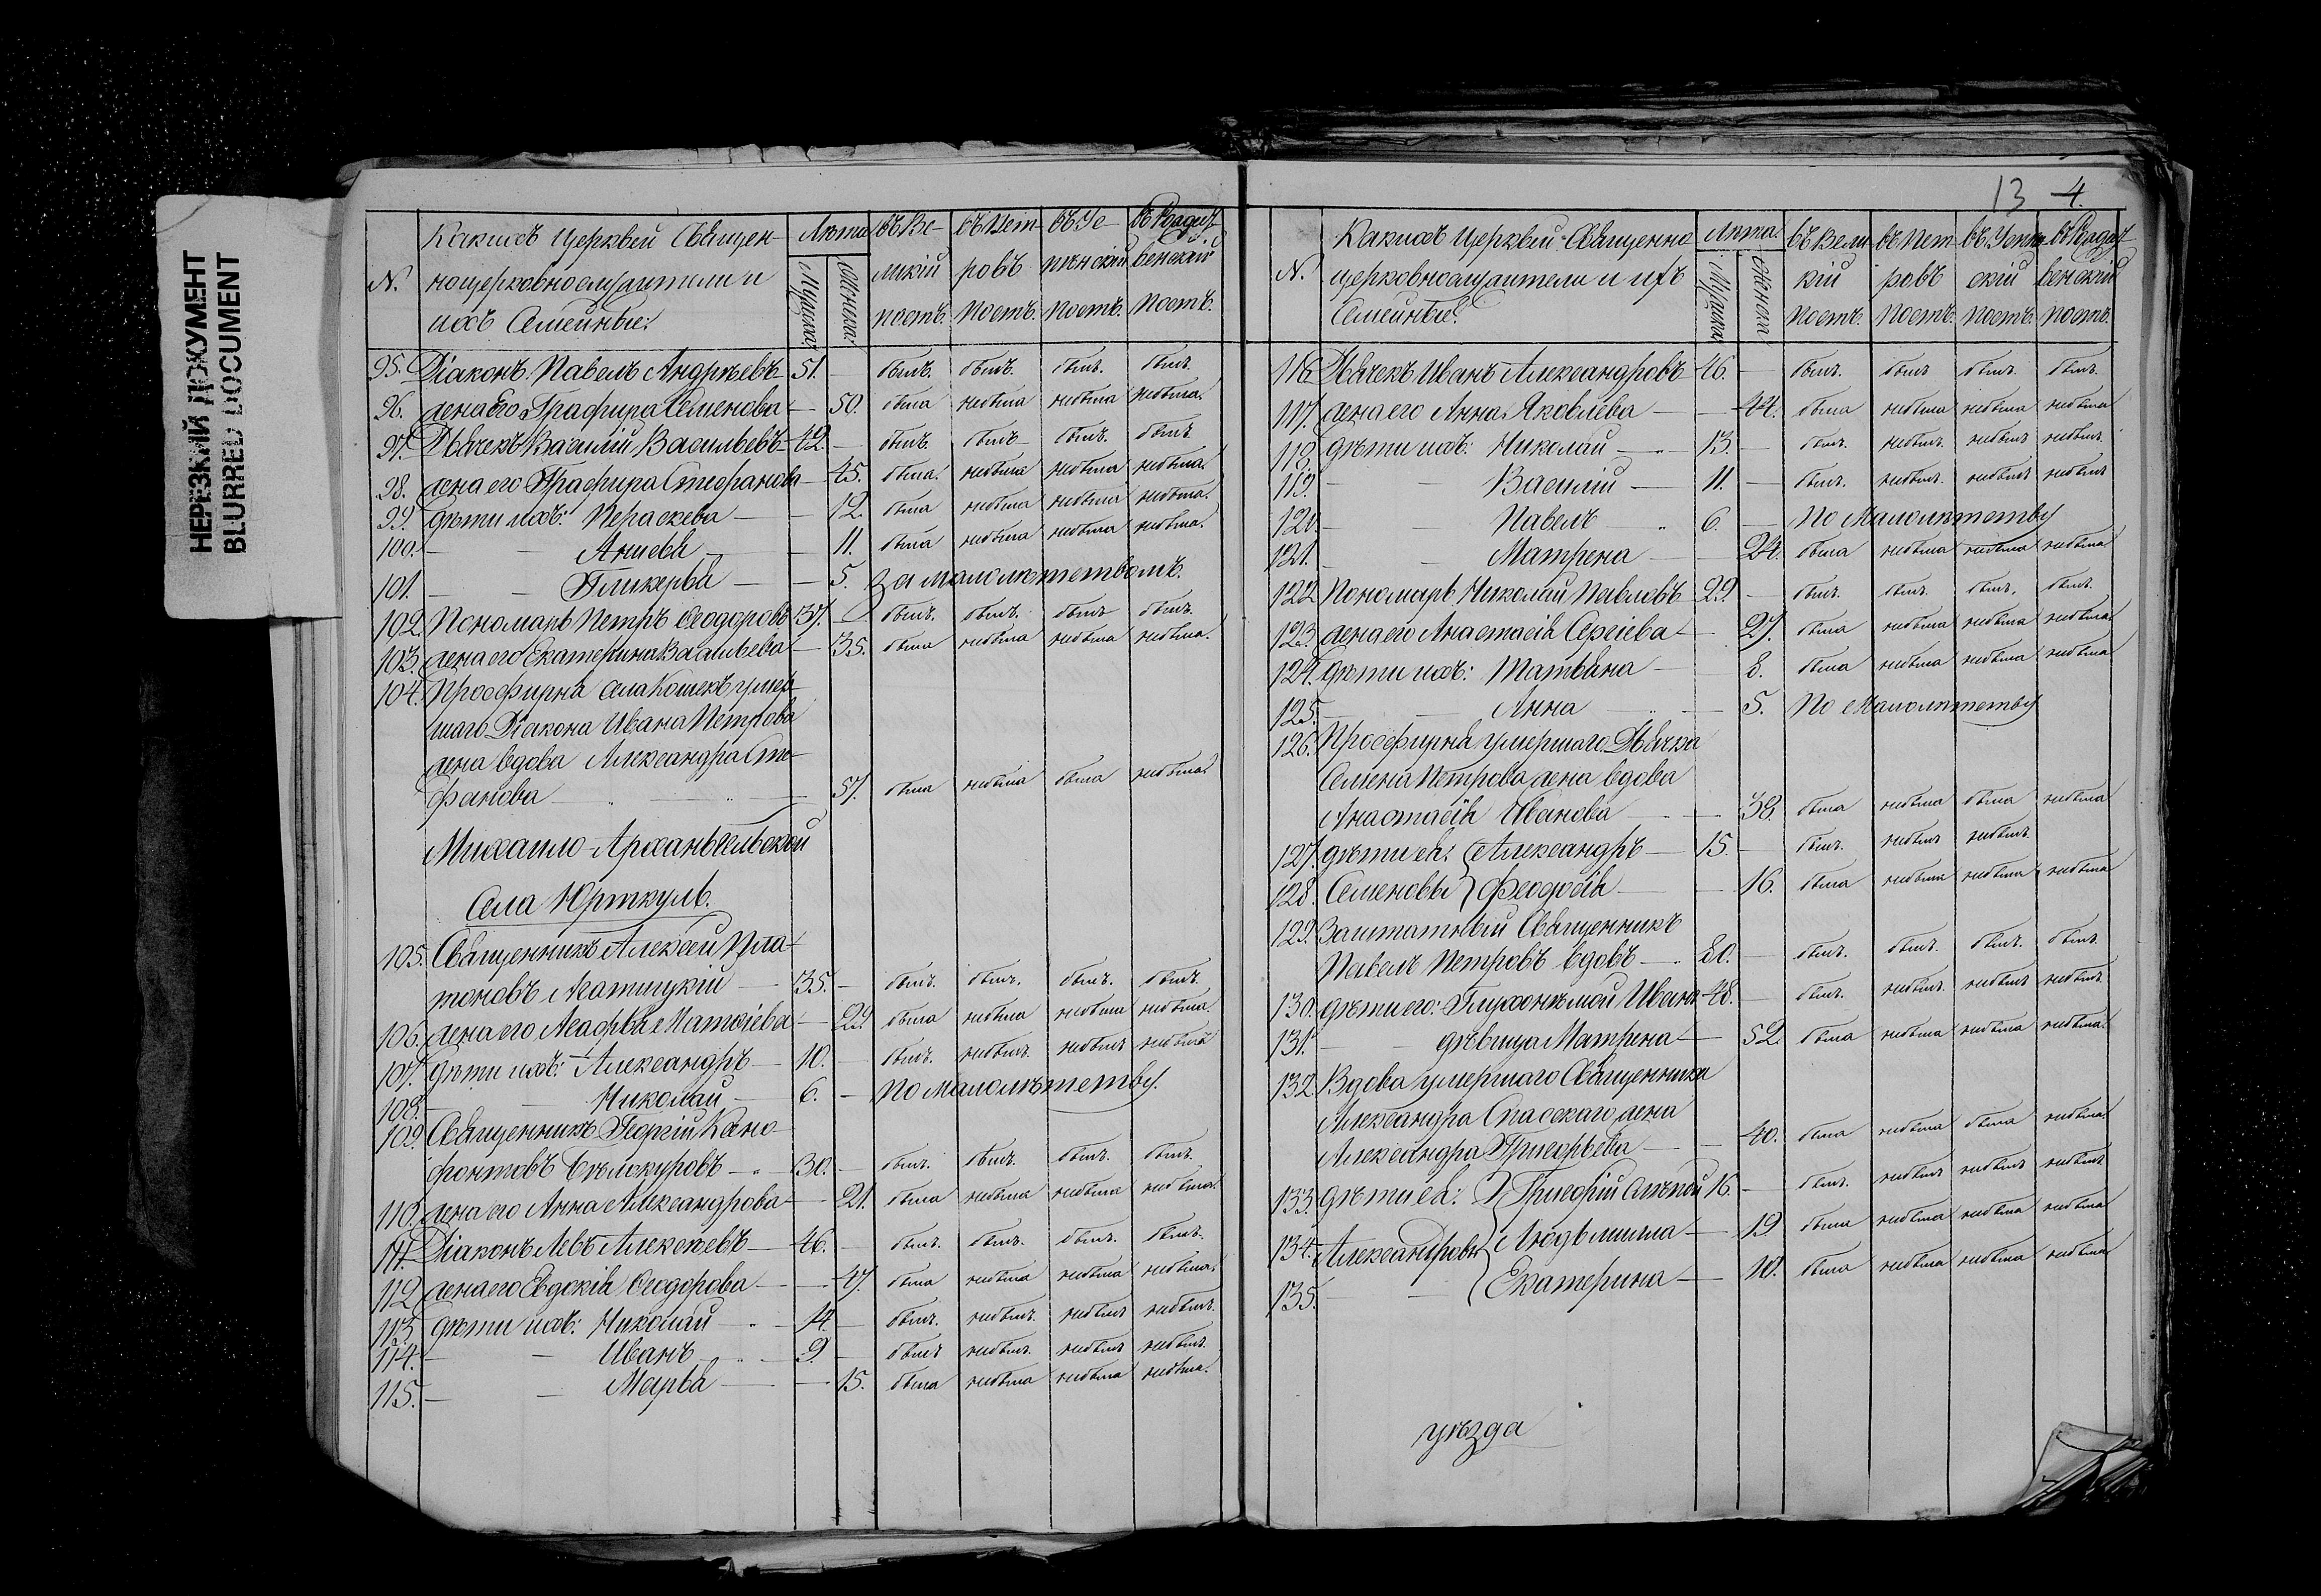 НЕРЕЗКИЙ ДОКУМЕНТ
BLURRED DOCUMENT
N. Какихъ Церквей Священ-
ноцерковнослужители и
ихъ Семейные:
Лѣта
Мужска Женска
въ Ве-
ликій
постъ.
въ Пет-
ровъ
постъ.
въ Ус-
пенскій
постъ.
въ Рождест
венскій
постъ.
95. Діаконъ Павелъ Андреевъ 51. — былъ. былъ. былъ. былъ.
96. жена его Графира Семенова — 50. была небыла небыла небыла.
97. Дьячекъ Василій Васильевъ 42. — былъ. былъ былъ. былъ.
98. жена его Графира Стефанова — 45. была. небыла небыла небыла.
99. дѣти ихъ: Пераскева — 12. была небыла небыла небыла.
100. — — Анисья — 11. была небыла небыла небыла.
101. — — Гликерья — 5. За малолѣтетвомъ.
102. Пономарь Петръ Ѳеодоровъ 37. былъ. былъ. былъ былъ.
103. жена его Екатерина Васильева — 35. была небыла небыла небыла.
104. Просфирня села Кошекъ умер-
шаго Діакона Ивана Петрова
жена вдова Александра Сте-
фанова — 57. была небыла была небыла
Михаило-Архангельской
Села Юрткуль.
105. Священникъ Алексей Пла-
тоновъ 35. — былъ. былъ. былъ. былъ.
106. жена его Матвіева — 29 была небыла небыла небыла.
107. дѣти ихъ: Александръ 10. — былъ. небылъ. небылъ небылъ
108. — — Николай — 6. — По малолѣтетву.
109. Священникъ Георгій Ксено-
фонтовъ Бѣлокуровъ 30. — былъ. былъ. былъ. былъ.
110. жена его Анна Александрова — 21. была небыла небыла небыла.
111. Діаконъ Левъ Алексѣевъ — 46. — былъ. былъ. былъ. былъ.
112. жена его Евдокія Ѳеодорова — 47. была небыла небыла небыла.
113. дѣти ихъ: Николай — 14 — былъ. небылъ. небылъ небылъ.
114. — — Иванъ — 9. — былъ небылъ. небылъ небылъ.
115. — — Марья — 15. была небыла небыла небыла.
13 4.
N. Какихъ Церквей Священно
церковнослужители и ихъ
Семейные:
Лѣта.
Мужска Женск
въ Вели
кій
постъ.
въ Пет-
ровъ
постъ.
въ Успен
скій
постъ.
въ Рождест
венскій
постъ.
116. Дьячекъ Иванъ Александровъ 46. — былъ. былъ былъ. былъ.
117. жена его Анна Яковлева — 44. была небыла небыла небыла
118. дѣти ихъ: Николай — 13. — былъ. небылъ. небылъ небылъ.
119. — — Василій — 11. — былъ. небылъ. небылъ небылъ
120. — — Павелъ 6. — По Малолѣтетву
121. — — Матрена — 24. была небыла небыла небыла
122. Пономарь Николай Павловъ 29. — былъ. былъ. былъ. былъ.
123. жена его Анастасія Сергіева — 27. была небыла небыла небыла
124. дѣти ихъ: Татьяна — 8. была небыла небыла небыла
125. — — Анна — 5. По Малолѣтетву
126. Просфирня умершаго Дьячка
Семена Петрова жена вдова
Анастасія Иванова — 38. была небыла была небыла
127. дѣти ея: Александръ — 15. — былъ. небылъ небылъ.
128. Семеновы Феодосія — 16. была небыла небыла небыла
129. Заштатный Священникъ
Павелъ Петровъ вдовъ — 80. — былъ. былъ. былъ. былъ.
130. дѣти его: Глухонѣмой Иванъ 48. — былъ. небылъ. небылъ небылъ.
131. — — дѣвица Матрена — 52. была небыла небыла небыла.
132. Вдова умершаго Священника
Александра Спасскаго жена
Александра Григорьева — 40. была небыла была небыла
133. дѣти ея: Григорій слѣпой 16. — былъ. небылъ небылъ небылъ
134. Александровы Людьмилла — 19. была небыла небыла небыла
135. — — Екатерина — 10. была небыла небыла небыла
уѣзда